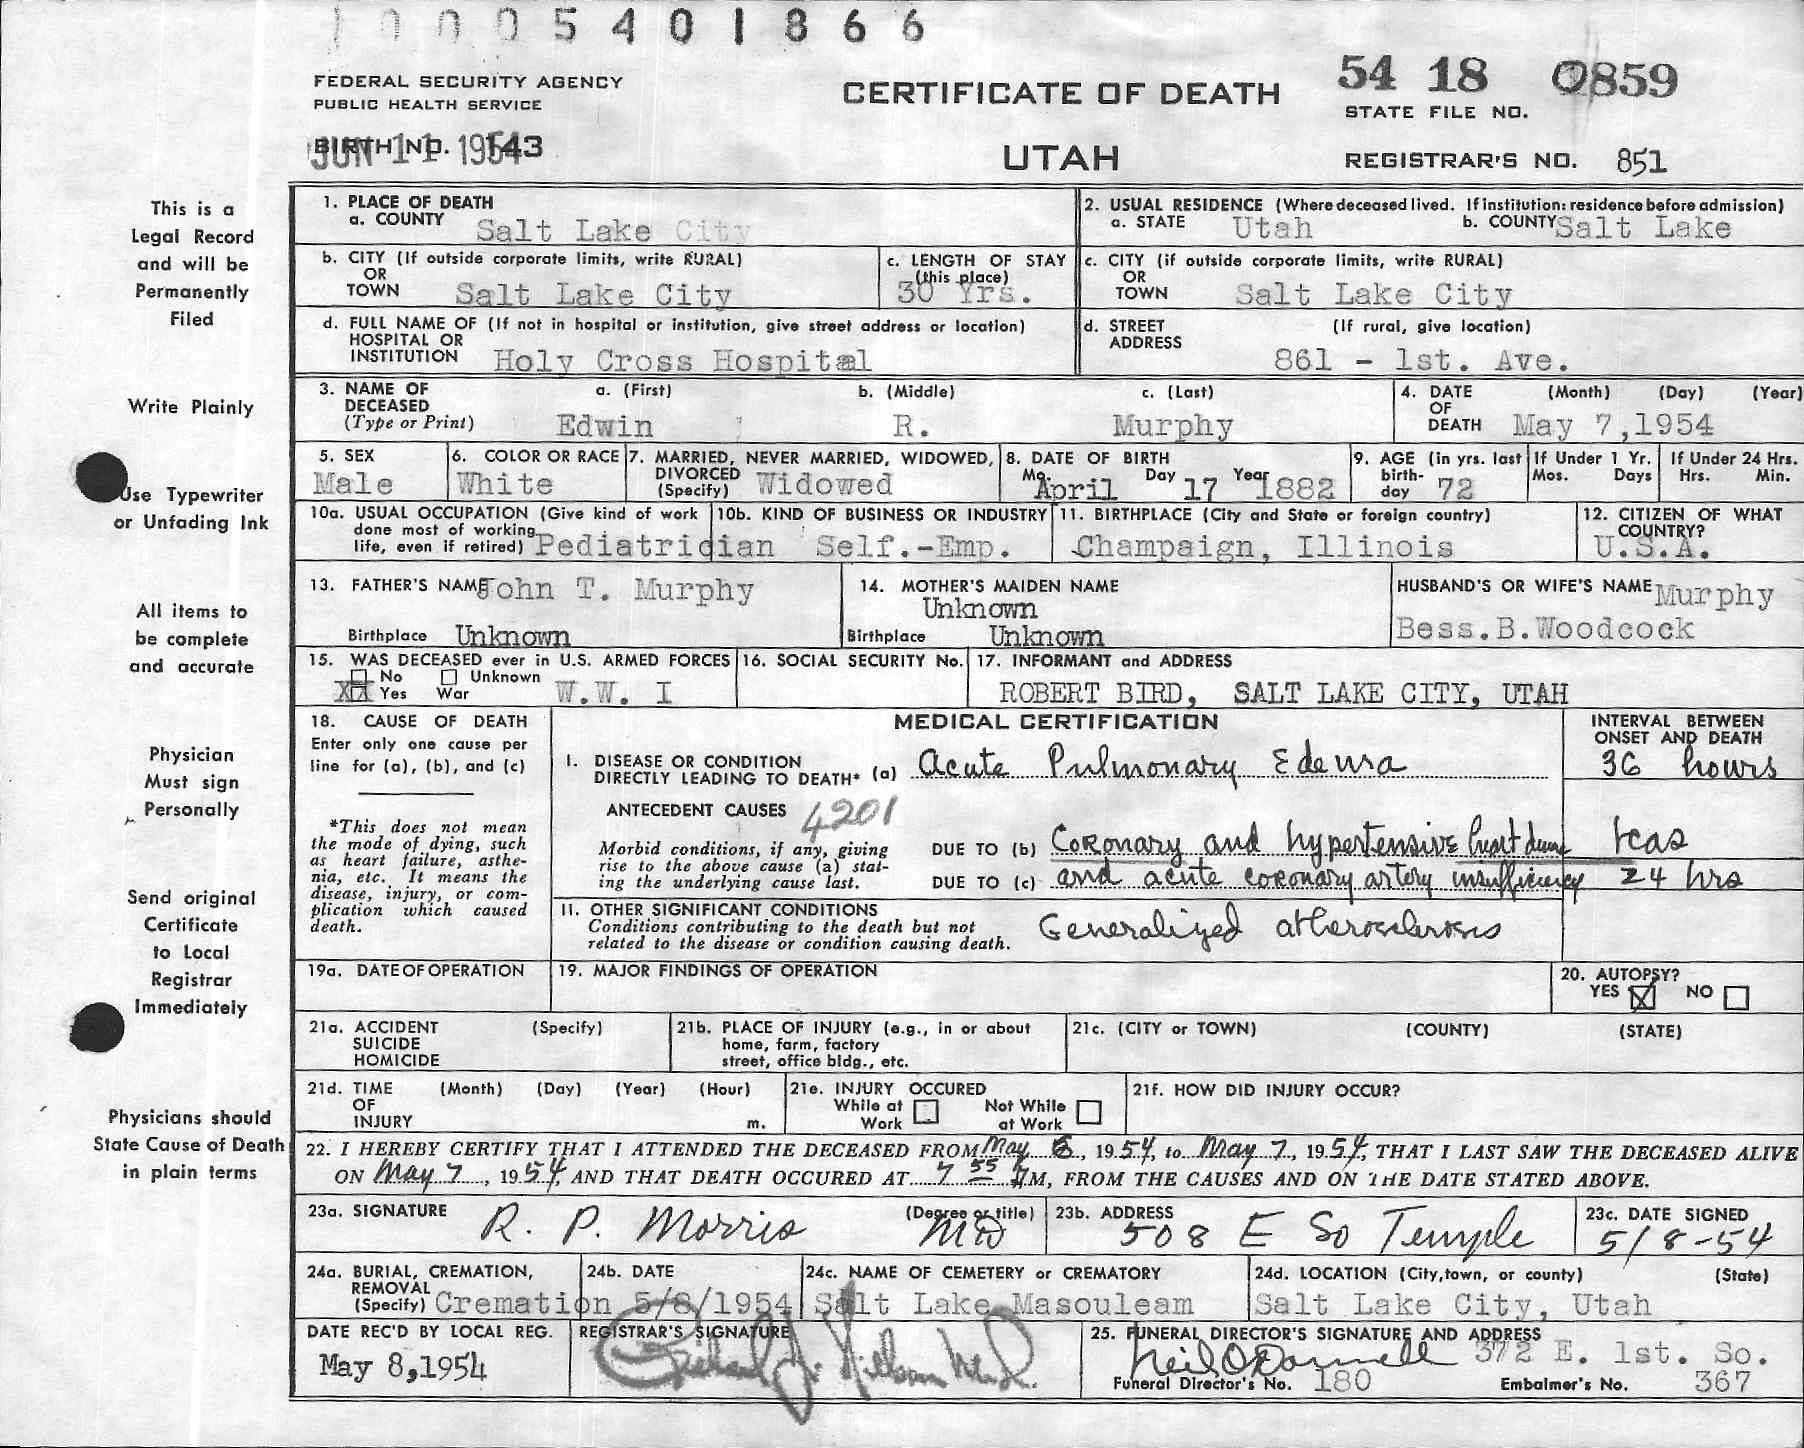 10005401866
FEDERAL SECURITY AGENCY
PUBLIC HEALTH SERVICE
CERTIFICATE OF DEATH
54 18 0859
STATE FILE NO.
BIRTH NO. 143
JUN 11 1954
UTAH
REGISTRAR'S NO. 851
This is a
Legal Record
and will be
Permanently
Filed
Write Plainly
Use Typewriter
or Unfading Ink
All items to
be complete
and accurate
Physician
Must sign
Personally
Send original
Certificate
to Local
Registrar
Immediately
Physicians should
State Cause of Death
in plain terms
1. PLACE OF DEATH
a. COUNTY Salt Lake City
2. USUAL RESIDENCE (Where deceased lived. If institution: residence before admission)
a. STATE Utah b. COUNTY Salt Lake
b. CITY (If outside corporate limits, write RURAL)
OR
TOWN Salt Lake City
c. LENGTH OF STAY
(this place)
30 Yrs.
c. CITY (if outside corporate limits, write RURAL)
OR
TOWN Salt Lake City
d. FULL NAME OF (If not in hospital or institution, give street address or location)
HOSPITAL OR
INSTITUTION Holy Cross Hospital
d. STREET (If rural, give location)
ADDRESS 861 - 1st. Ave.
3. NAME OF a. (First) b. (Middle) c. (Last)
DECEASED
(Type or Print) Edwin R. Murphy
4. DATE (Month) (Day) (Year)
OF
DEATH May 7,1954
5. SEX
Male
6. COLOR OR RACE
White
7. MARRIED, NEVER MARRIED, WIDOWED,
DIVORCED
(Specify) Widowed
8. DATE OF BIRTH
Mo. April Day 17 Year 1882
9. AGE (in yrs. last
birth-
day 72
If Under 1 Yr.
Mos. Days
If Under 24 Hrs.
Hrs. Min.
10a. USUAL OCCUPATION (Give kind of work
done most of working
life, even if retired) Pediatrician
10b. KIND OF BUSINESS OR INDUSTRY
Self.-Emp.
11. BIRTHPLACE (City and State or foreign country)
Champaign, Illinois
12. CITIZEN OF WHAT
COUNTRY?
U.S.A.
13. FATHER'S NAME John T. Murphy
Birthplace Unknown
14. MOTHER'S MAIDEN NAME
Unknown
Birthplace Unknown
HUSBAND'S OR WIFE'S NAME Murphy
Bess.B.Woodcock
15. WAS DECEASED ever in U.S. ARMED FORCES
No Unknown
XX Yes War W.W. I
16. SOCIAL SECURITY No.
17. INFORMANT and ADDRESS
ROBERT BIRD, SALT LAKE CITY, UTAH
18. CAUSE OF DEATH
Enter only one cause per
line for (a), (b), and (c)
*This does not mean
the mode of dying, such
as heart failure, asthe-
nia, etc. It means the
disease, injury, or com-
plication which caused
death.
MEDICAL CERTIFICATION
INTERVAL BETWEEN
ONSET AND DEATH
I. DISEASE OR CONDITION
DIRECTLY LEADING TO DEATH* (a) Acute Pulmonary Edema 36 hours
ANTECEDENT CAUSES 4201
Morbid conditions, if any, giving
rise to the above cause (a) stat-
ing the underlying cause last.
DUE TO (b) Coronary and hypertensive heart
DUE TO (c) and acute coronary artery insufficiency 24 hrs
II. OTHER SIGNIFICANT CONDITIONS
Conditions contributing to the death but not
related to the disease or condition causing death.
Generalized atherosclerosis
19a. DATE OF OPERATION
19. MAJOR FINDINGS OF OPERATION
20. AUTOPSY?
YES X NO
21a. ACCIDENT (Specify)
SUICIDE
HOMICIDE
21b. PLACE OF INJURY (e.g., in or about
home, farm, factory
street, office bldg., etc.
21c. (CITY or TOWN) (COUNTY) (STATE)
21d. TIME (Month) (Day) (Year) (Hour)
OF
INJURY m.
21e. INJURY OCCURED
While at Not While
Work at Work
21f. HOW DID INJURY OCCUR?
22. I HEREBY CERTIFY THAT I ATTENDED THE DECEASED FROM May 6, 1954, to May 7, 1954, THAT I LAST SAW THE DECEASED ALIVE
ON May 7, 1954, AND THAT DEATH OCCURED AT 7 55 M, FROM THE CAUSES AND ON THE DATE STATED ABOVE.
23a. SIGNATURE R. P. Morris (Degree or title) MD
23b. ADDRESS
508 E So Temple
23c. DATE SIGNED
5/8-54
24a. BURIAL, CREMATION,
REMOVAL
(Specify) Cremation
24b. DATE
5/8/1954
24c. NAME OF CEMETERY or CREMATORY
Salt Lake Masouleam
24d. LOCATION (City, town, or county) (State)
Salt Lake City, Utah
DATE REC'D BY LOCAL REG.
May 8,1954
REGISTRAR'S SIGNATURE
25. FUNERAL DIRECTOR'S SIGNATURE AND ADDRESS
Neil O'Donnell 372 E. 1st. So.
Funeral Director's No. 180 Embalmer's No. 367